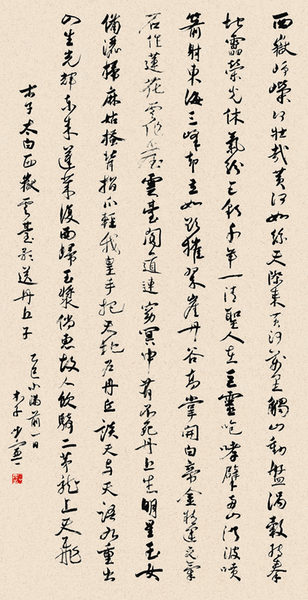 西嶽崢嶸何壯哉黄河如絲天際来黄河萬里觸山動盤渦轂轉秦
地雷榮光休氣紛五彩千年一清聖人在巨靈咆哮擘兩山洪波噴
箭射東海三峰却立如欲摧翠崖丹谷高掌開白帝金精運元氣
石作蓮花雲作臺雲臺閣道連窈冥中有不死丹丘生明星玉女
備灑掃麻姑搔背指爪輕我皇手把天地户丹丘談天与天語九重出
入生光輝東来蓬萊復西歸玉漿倘惠故人飲騎二茅龍上天飛
右李太白西嶽雲臺歌送丹丘子
乙巳小滿前一日